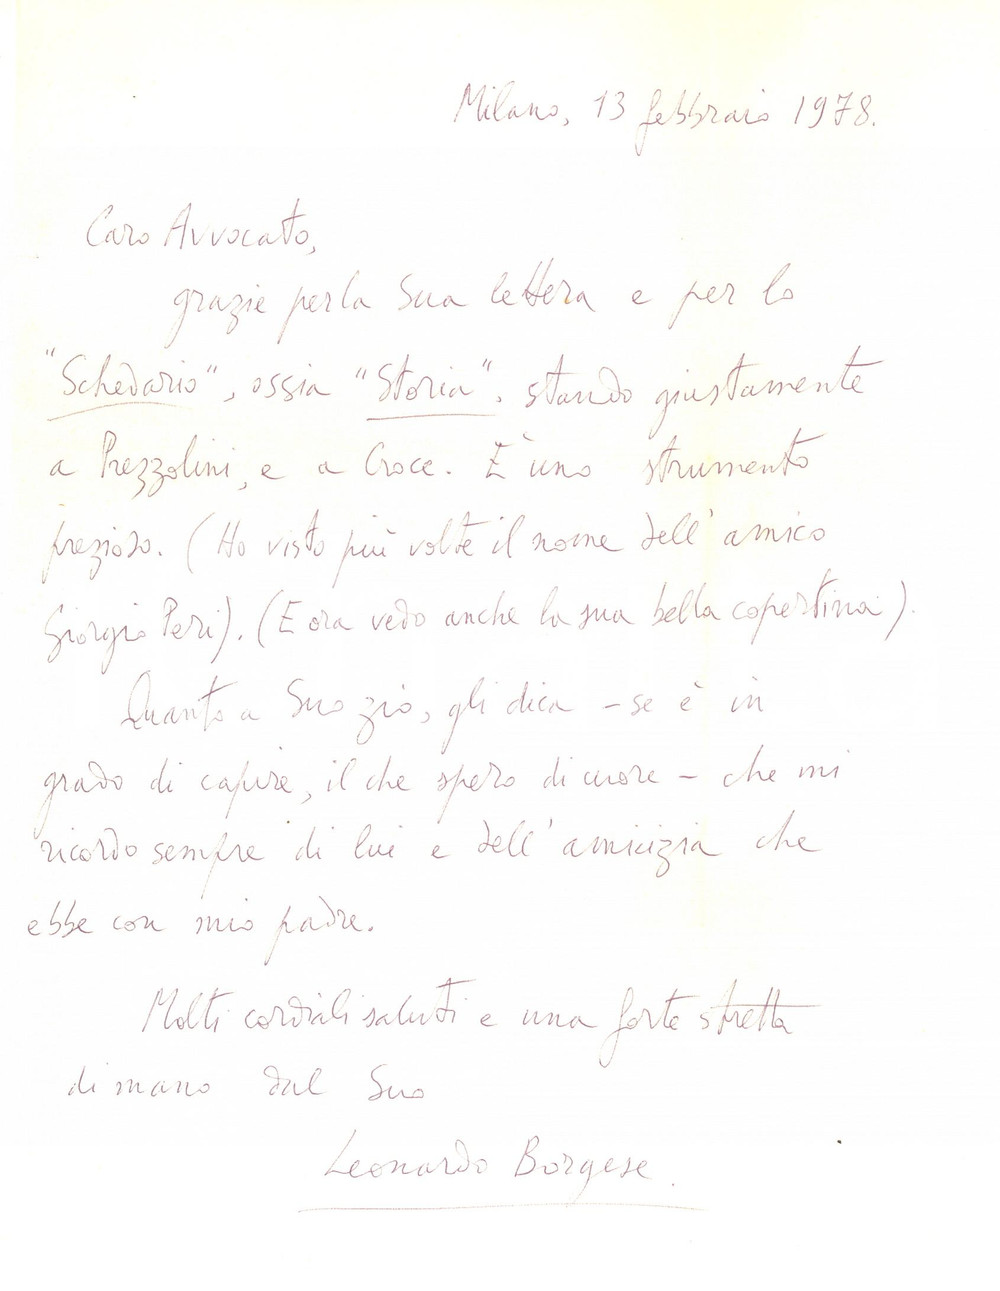 Milano, 13 febbraio 1978.
Caro Avvocato,
grazie per la Sua lettera e per lo
"Schedario", ossia "Storia", stando giustamente
a Prezzolini, e a Croce. È uno strumento
prezioso. (Ho visto più volte il nome dell'amico
Giorgio Peri). (E ora vedo anche la sua bella copertina).
Quanto a Suo zio, gli dica - se è in
grado di capire, il che spero di cuore - che mi
ricordo sempre di lui e dell'amicizia che
ebbe con mio padre.
Molti cordiali saluti e una forte stretta
di mano dal Suo
Leonardo Borgese.